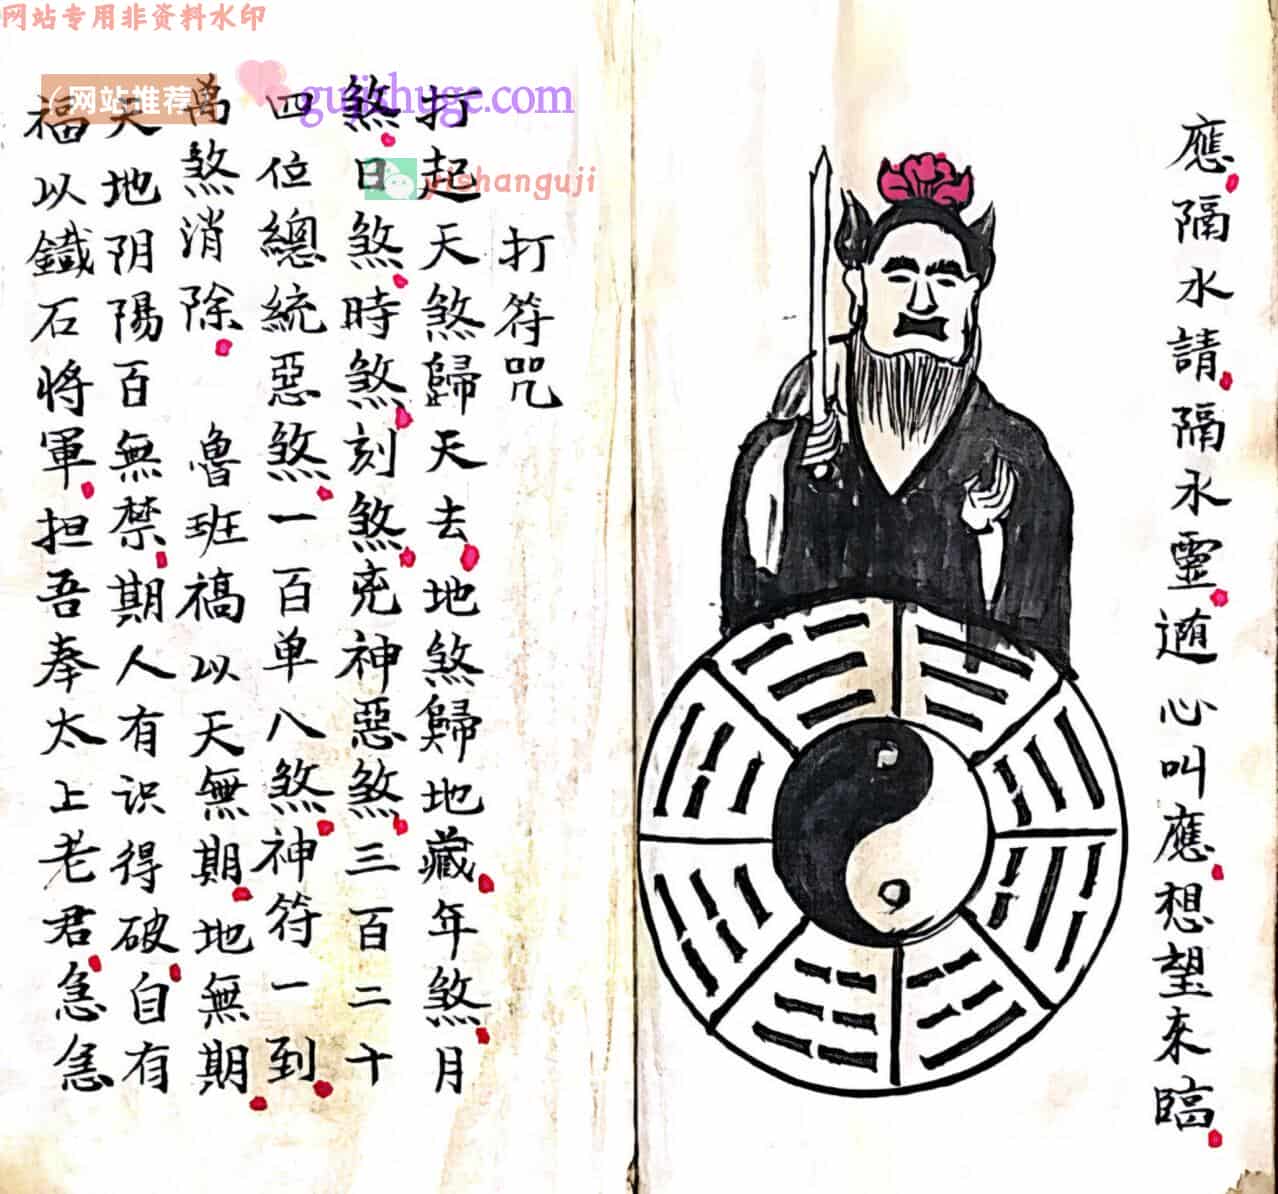 网站专用非资料水印
（网站推荐
gujishuge.com
yishanguji
應隔水請隔永靈遁心叫應想望來臨
打符咒
打起天煞歸天去地煞歸地藏年煞月
煞日煞時煞刻煞兇神惡煞三百二十
四位總統惡煞一百单八煞神符一到
萬煞消除 魯班禍以天無期地無期
天地阴陽百無禁期人有识得破自有
福以鐵石将軍担吾奉太上老君急急